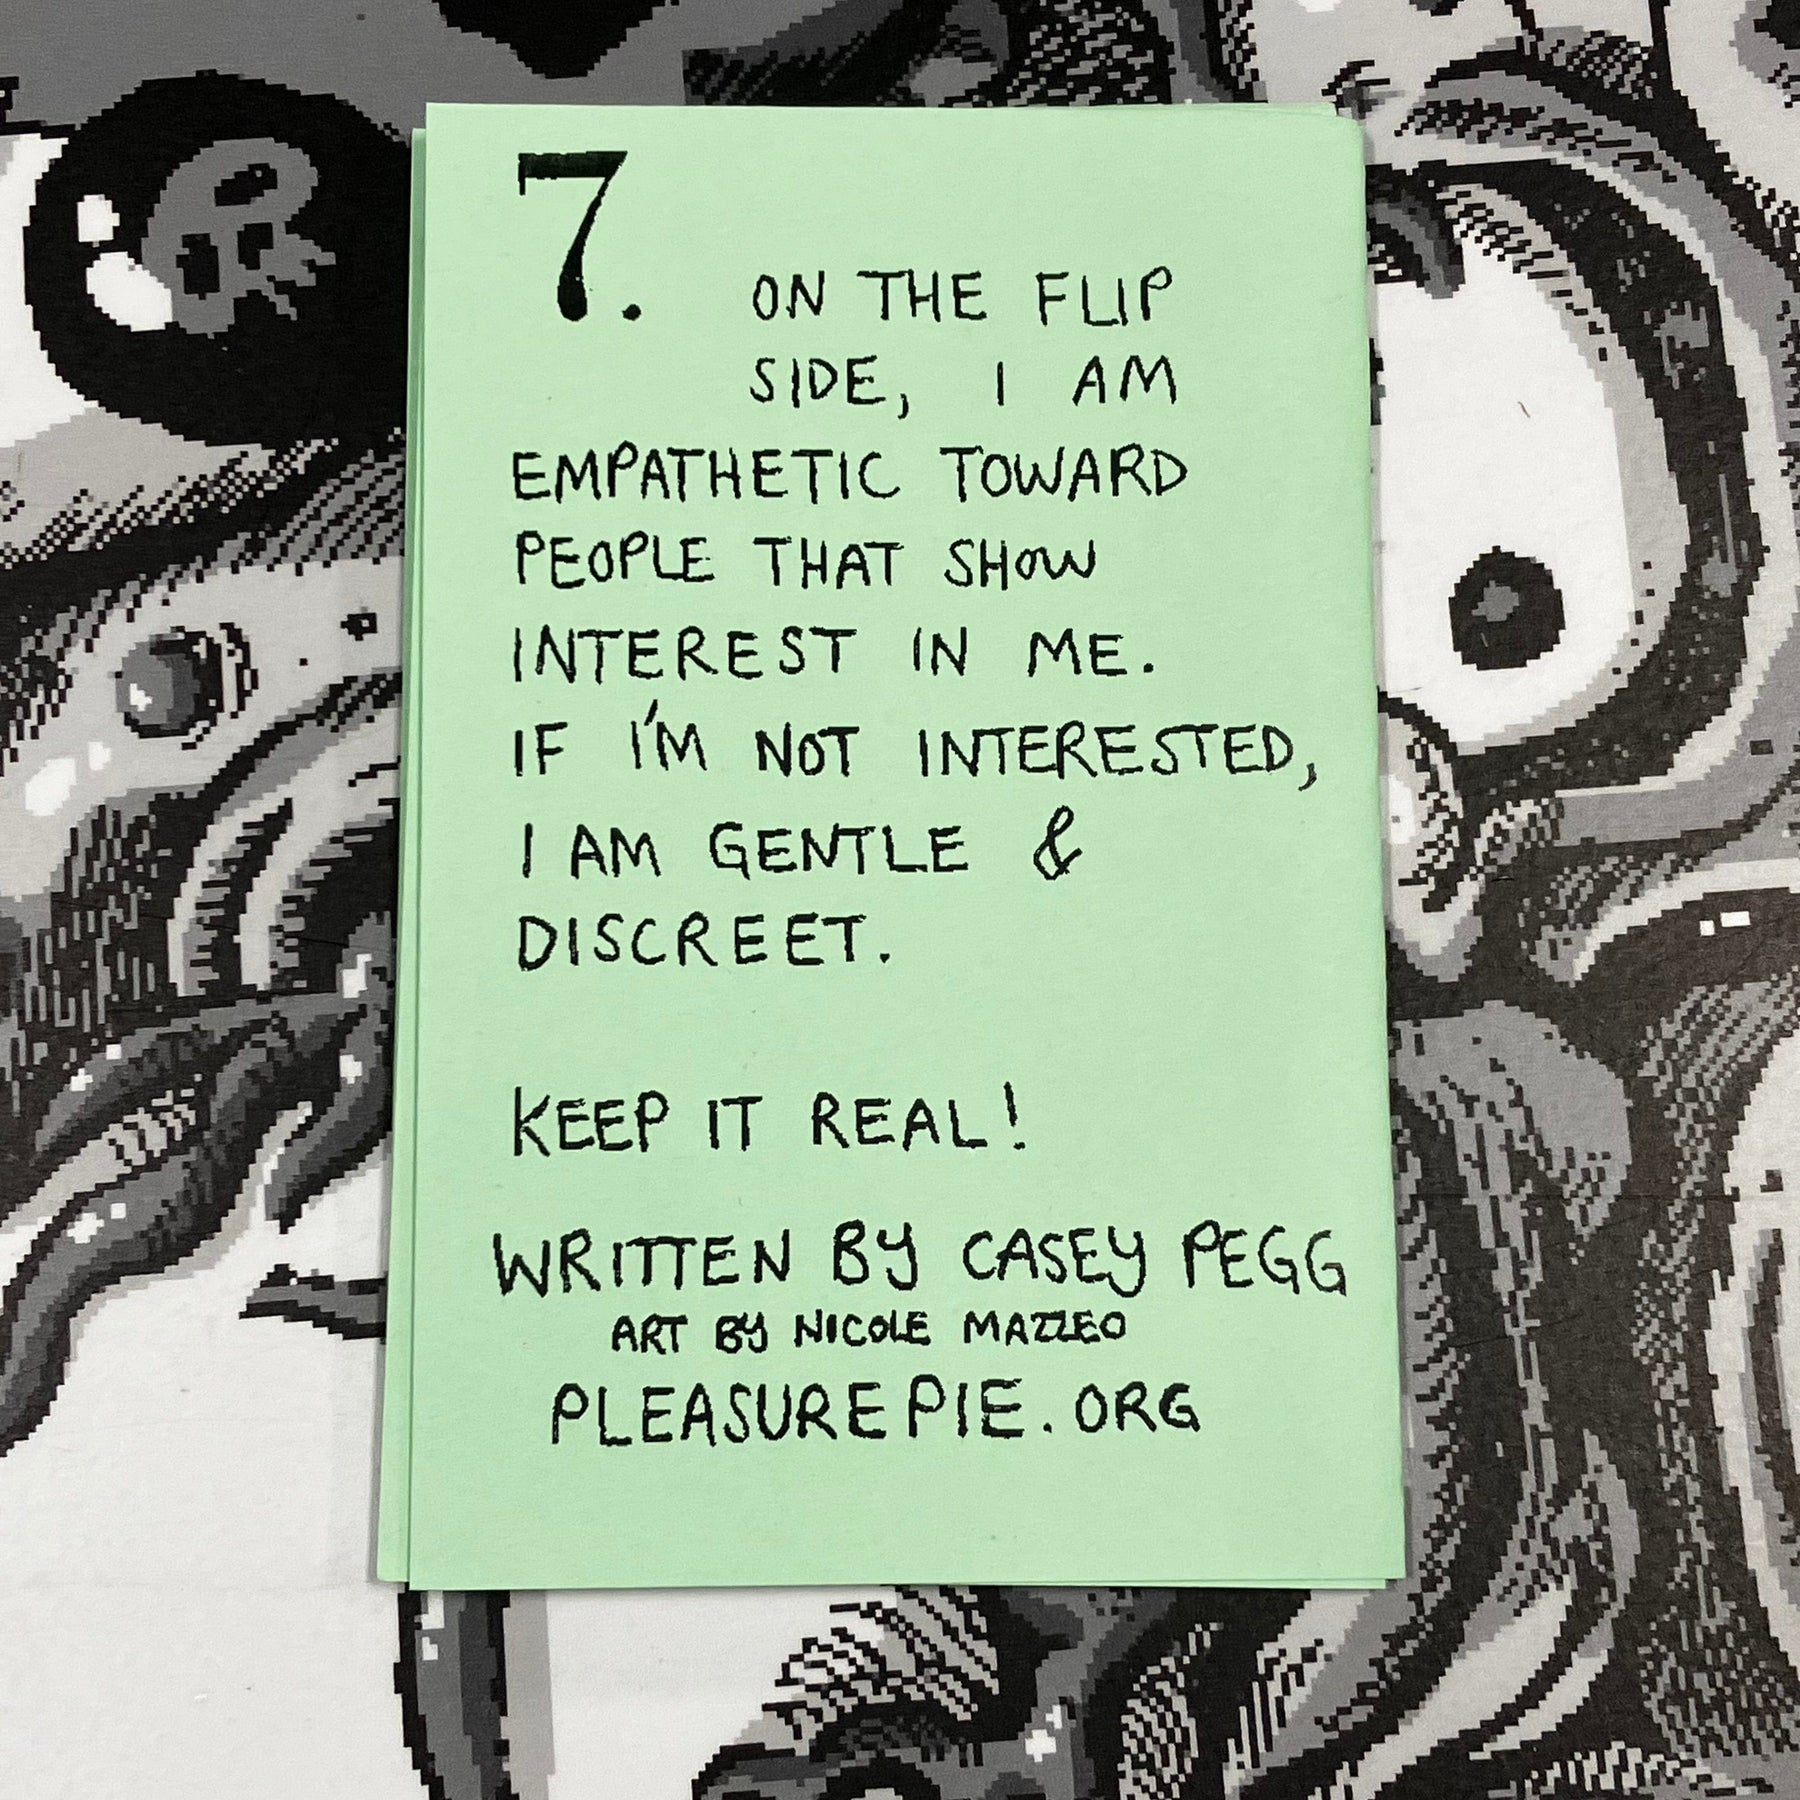 7. ON THE FLIP
SIDE, I AM
EMPATHETIC TOWARD
PEOPLE THAT SHOW
INTEREST IN ME.
IF I'M NOT INTERESTED,
I AM GENTLE &
DISCREET.
KEEP IT REAL!
WRITTEN BY CASEY PEGG
ART BY NICOLE MAZZEO
PLEASUREPIE.ORG